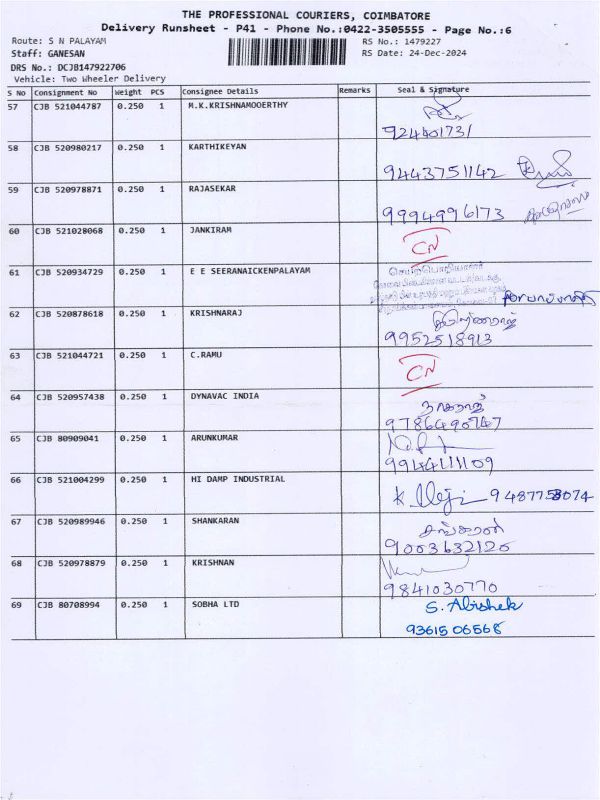 THE PROFESSIONAL COURIERS, COIMBATORE
Delivery Runsheet - P41 - Phone No.:0422-3505555 - Page No.:6
Route: S N PALAYAM
RS No.: 1479227
Staff: GANESAN
RS Date: 24-Dec-2024
DRS No.: DCJB147922706
Vehicle: Two Wheeler Delivery
S No Consignment No Weight PCS Consignee Details Remarks Seal & Signature
57 CJB 521044787 0.250 1 M.K.KRISHNAMOOERTHY
924401731
58 CJB 520980217 0.250 1 KARTHIKEYAN
9443751142
59 CJB 520978871 0.250 1 RAJASEKAR
9994996173
60 CJB 521028068 0.250 1 JANKIRAM
CN
61 CJB 520934729 0.250 1 E E SEERANAICKENPALAYAM
செயற்பொறியாளர்
62 CJB 520878618 0.250 1 KRISHNARAJ
9952518913
63 CJB 521044721 0.250 1 C.RAMU
CN
64 CJB 520957438 0.250 1 DYNAVAC INDIA
நாகராஜ்
9786490747
65 CJB 80909041 0.250 1 ARUNKUMAR
9944111109
66 CJB 521004299 0.250 1 HI DAMP INDUSTRIAL
9487758074
67 CJB 520989946 0.250 1 SHANKARAN
சங்கரன்
9003632126
68 CJB 520978879 0.250 1 KRISHNAN
9841030770
69 CJB 80708994 0.250 1 SOBHA LTD
S. Abishek
93615 06568